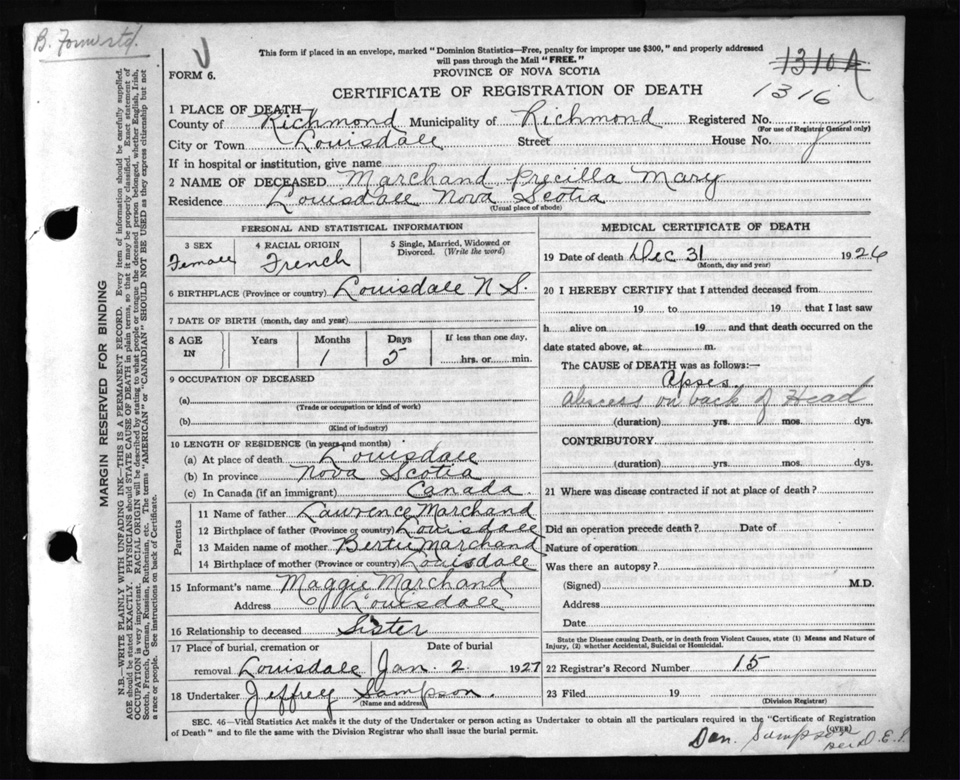 B. Forwrtd.
This form if placed in an envelope, marked "Dominion Statistics—Free, penalty for improper use $300," and properly addressed
will pass through the Mail "FREE."
FORM 6.
PROVINCE OF NOVA SCOTIA
1310A
CERTIFICATE OF REGISTRATION OF DEATH
1316
1 PLACE OF DEATH—
County of Richmond Municipality of Richmond Registered No.
(For use of Registrar General only)
City or Town Louisdale Street House No.
If in hospital or institution, give name
2 NAME OF DECEASED Marchand Precilla Mary
Residence Louisdale Nova Scotia
(Usual place of abode)
PERSONAL AND STATISTICAL INFORMATION
3 SEX Female
4 RACIAL ORIGIN French
5 Single, Married, Widowed or Divorced. (Write the word)
6 BIRTHPLACE (Province or country) Louisdale N S.
7 DATE OF BIRTH (month, day and year)
8 AGE IN Years Months 1 Days 5 If less than one day, hrs. or min.
9 OCCUPATION OF DECEASED
(a)
(Trade or occupation or kind of work)
(b)
(Kind of industry)
10 LENGTH OF RESIDENCE (in years and months)
(a) At place of death Louisdale
(b) In province Nova Scotia
(c) In Canada (if an immigrant) Canada.
Parents
11 Name of father Lawrence Marchand
12 Birthplace of father (Province or country) Louisdale
13 Maiden name of mother Bertie Marchand
14 Birthplace of mother (Province or country) Louisdale
15 Informant's name Maggie Marchand
Address Louisdale
16 Relationship to deceased Sister
17 Place of burial, cremation or Date of burial
removal Louisdale Jan. 2. 1927
18 Undertaker Jeffrey Sampson.
(Name and address)
MEDICAL CERTIFICATE OF DEATH
19 Date of death Dec 31 1926
(Month, day and year)
20 I HEREBY CERTIFY that I attended deceased from
19 to 19 that I last saw
h alive on 19 and that death occurred on the
date stated above, at m.
The CAUSE of DEATH was as follows:—
Apses.
Abscess on back of Head
(duration) yrs. mos. dys.
CONTRIBUTORY
(duration) yrs. mos. dys.
21 Where was disease contracted if not at place of death?
Did an operation precede death? Date of
Nature of operation
Was there an autopsy?
(Signed) M.D.
Address
Date
State the Disease causing Death, or in death from Violent Causes, state (1) Means and Nature of
Injury, (2) whether Accidental, Suicidal or Homicidal.
22 Registrar's Record Number 15
23 Filed 19
(Division Registrar)
SEC. 46—Vital Statistics Act makes it the duty of the Undertaker or person acting as Undertaker to obtain all the particulars required in the "Certificate of Registration
of Death" and to file the same with the Division Registrar who shall issue the burial permit.
(OVER)
Dan. Sampson
MARGIN RESERVED FOR BINDING
N.B.—WRITE PLAINLY WITH UNFADING INK—THIS IS A PERMANENT RECORD. Every item of information should be carefully supplied.
AGE should be stated EXACTLY. PHYSICIANS should STATE CAUSE OF DEATH in plain terms, so that it may be properly classified. Exact statement of
OCCUPATION is very important. RACIAL ORIGIN will be described by stating to what people or tongue the deceased person belonged, whether English, Irish,
Scotch, French, German, Russian, Ruthenian, etc. The terms "AMERICAN" or "CANADIAN" SHOULD NOT BE USED as they express citizenship but not
a race or people. See instructions on back of Certificate.